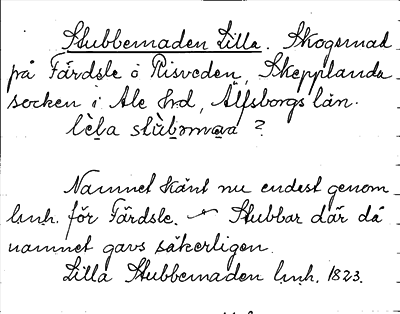 Stubbemaden Lilla. Skogsmad
på Färdsle å Risveden, Skepplanda
socken i Ale hrd, Älfsborgs län.
lèḷa stùbəmạa ?
Namnet känt nu endest genom
lmh. för Färdsle. Stubbar där då
namnet gavs säkerligen.
Lilla Stubbemaden lmh. 1823.